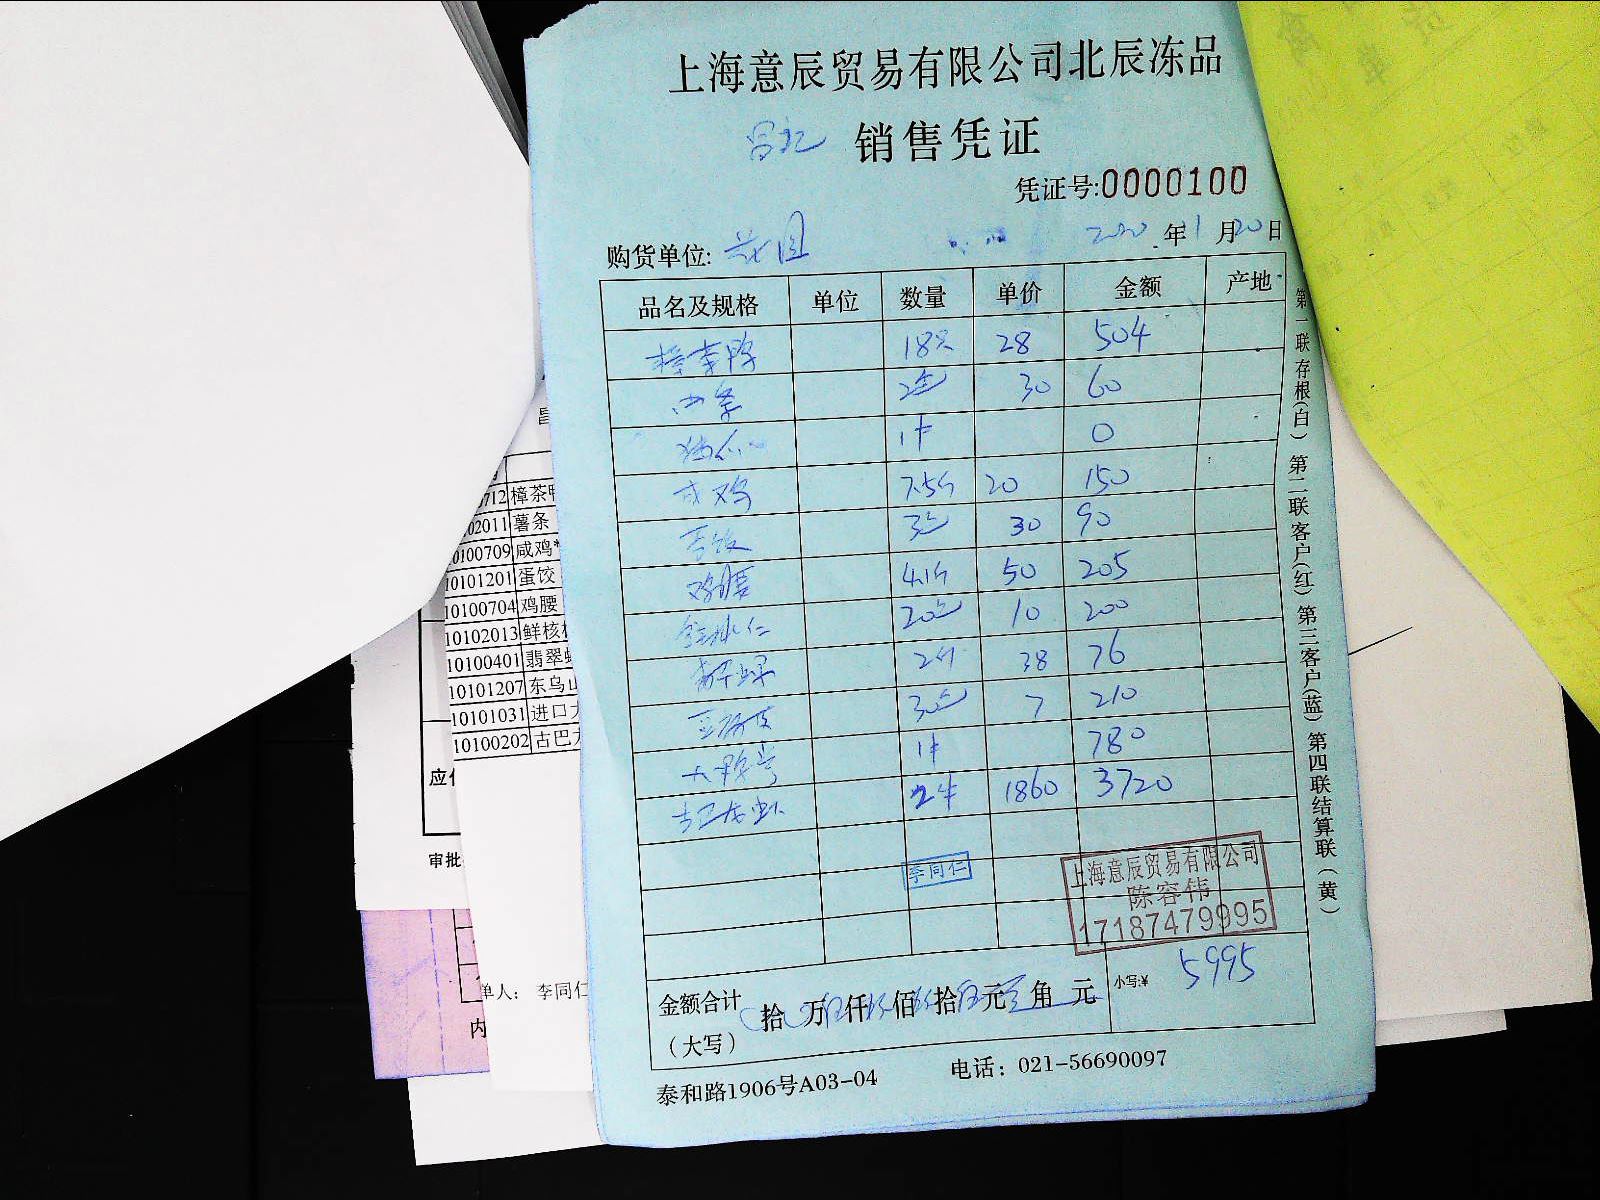 上海意辰贸易有限公司北辰冻品
销售凭证
凭证号:0000100
购货单位: 花园 2020 年 11 月 20 日
品名及规格 单位 数量 单价 金额 产地
樟茶鸭 18只 28 504
薯条 2包 30 60
1件 0
咸鸡 7.5斤 20 150
蛋饺 3包 30 90
鸡腰 4.1斤 50 205
核桃仁 20包 10 200
翡翠螺 2斤 38 76
30包 7 210
1件 780
古巴龙虾 2件 1860 3720
李同仁
上海意辰贸易有限公司
陈容伟
17187479995
金额合计
(大写)
拾 万 仟 佰 拾 元 角 元
小写:¥ 5995
泰和路1906号A03-04 电话: 021-56690097
第一联存根(白) 第二联客户(红) 第三客户(蓝) 第四联结算联(黄)
712 樟茶鸭
02011 薯条
0100709 咸鸡*
10101201 蛋饺
10100704 鸡腰
10102013 鲜核桃
10100401 翡翠螺
10101207 东乌
10101031 进口
10100202 古巴
审批
单人: 李同仁
内